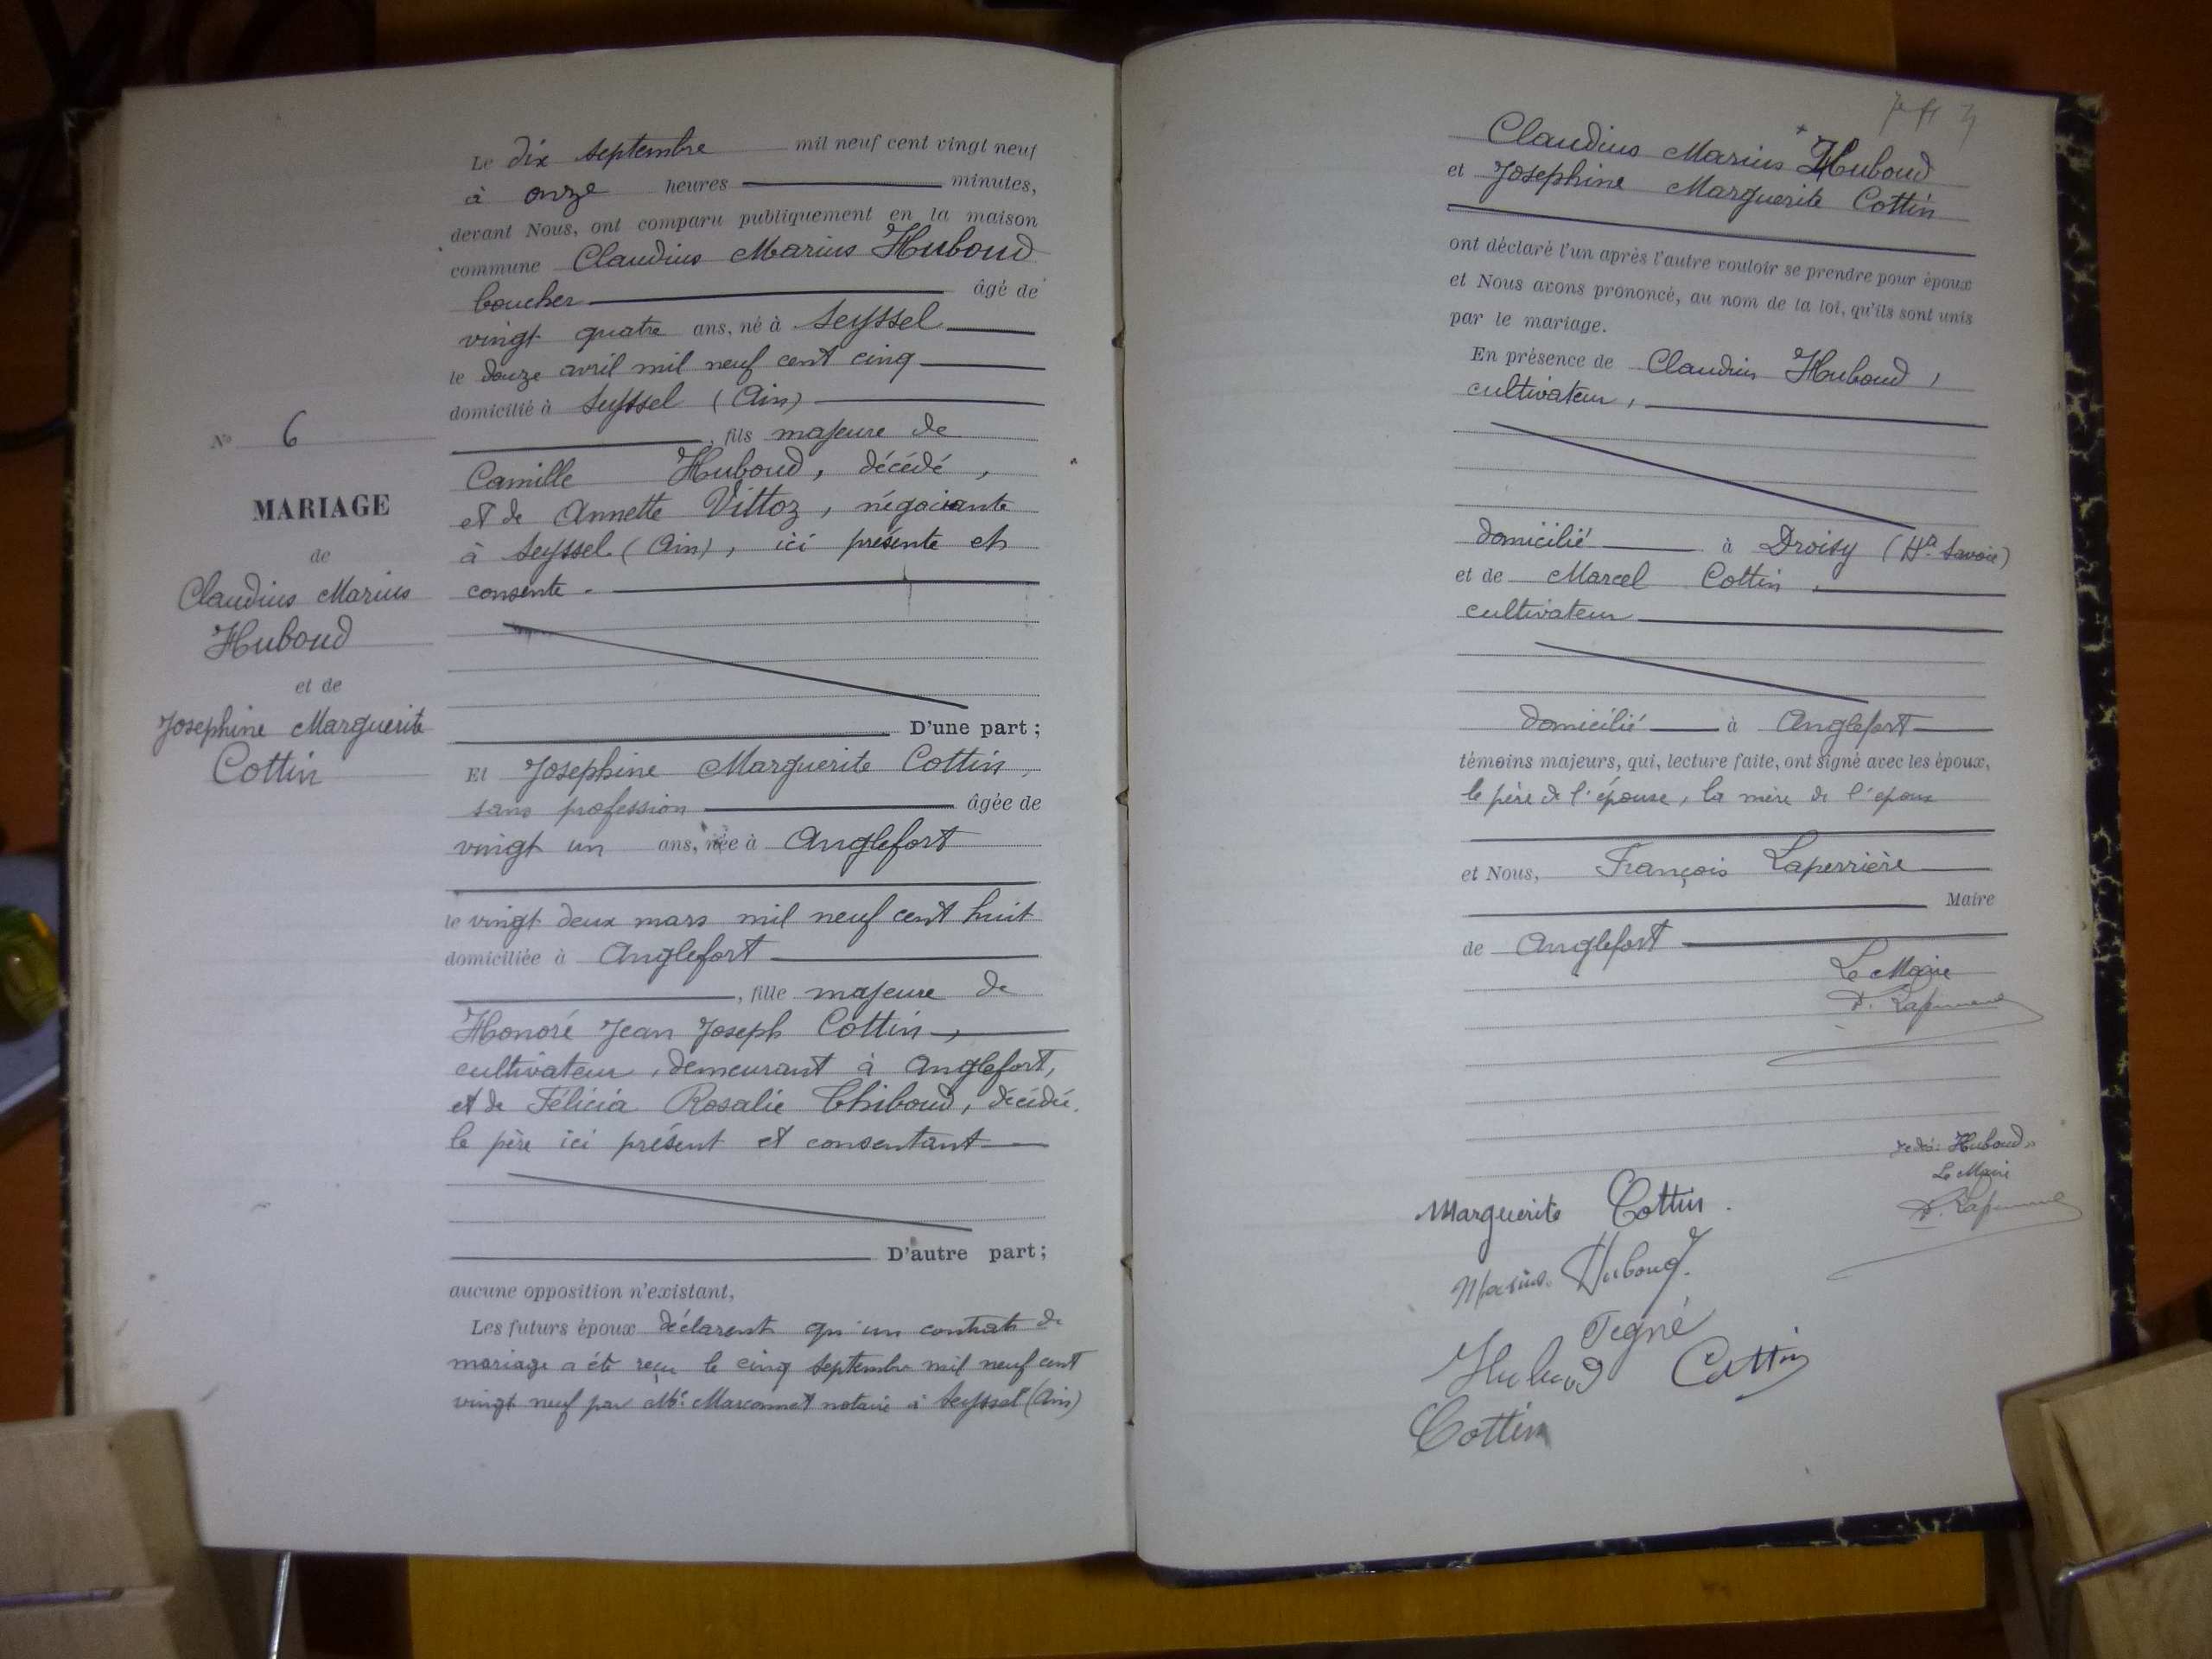 Nº 6
MARIAGE
de
Claudius Marius
Huboud
et de
Josephine Marguerite
Cottin
Le dix septembre mil neuf cent vingt neuf
à onze heures minutes,
devant Nous, ont comparu publiquement en la maison
commune Claudius Marius Huboud
boucher âgé de
vingt quatre ans, né à Seyssel
le douze avril mil neuf cent cinq
domicilié à Seyssel (Ain)
, fils majeure de
Camille Huboud, décédé,
et de Annette Vittoz, négociante
à Seyssel (Ain), ici présente et
consente.
D'une part;
Et Josephine Marguerite Cottin,
sans profession âgée de
vingt un ans, née à Anglefort
le vingt deux mars mil neuf cent huit
domiciliée à Anglefort
, fille majeure de
Honoré Jean Joseph Cottin,
cultivateur, demeurant à Anglefort,
et de Félicia Rosalie Chiboud, décédée.
le père ici présent et consentant
D'autre part;
aucune opposition n'existant,
Les futurs époux déclarent qu'un contrat de
mariage a été reçu le cinq septembre mil neuf cent
vingt neuf par Me Marconnet notaire à Seyssel (Ain)
Claudius Marius + Huboud
et Josephine Marguerite Cottin
ont déclaré l'un après l'autre vouloir se prendre pour époux
et Nous avons prononcé, au nom de la loi, qu'ils sont unis
par le mariage.
En présence de Claudius Huboud,
cultivateur,
domicilié à Droisy (Hte Savoie)
et de Marcel Cottin,
cultivateur
domicilié à Anglefort
témoins majeurs, qui, lecture faite, ont signé avec les époux,
le père de l'épouse, la mère de l'époux
et Nous, François Laperrière
Maire
de Anglefort
Le Maire
F. Laperrière
Huboud
Le Maire
F. Laperrière
Marguerite Cottin.
Marius Huboud.
Huboud Cottin
Cottin